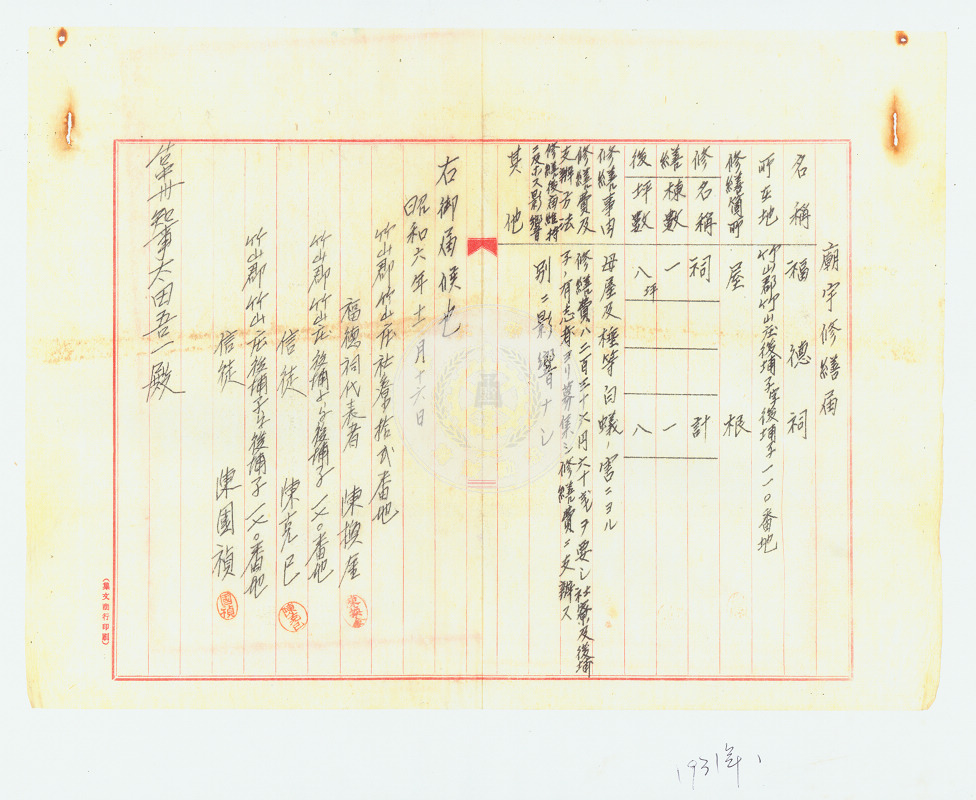 廟宇修繕届
名稱 福德祠
所在地 竹山郡竹山庄後埔子字後埔子一一〇番地
修繕箇所 屋根
修 名稱 祠 計
繕 棟數 一 一
後 坪數 八坪 八
修繕事由 母屋及棰等白蟻ノ害ニヨル
修繕費及 修繕費ハ二百三十六円六十戋ヲ要シ社寮及後埔
支辦方法 子ノ有志者ヨリ募集シ修繕費ニ支辦ス
修繕後廟維持
ニ及ホス影響 別ニ影響ナシ
其他
右御届候也
昭和六年十一月十六日
竹山郡竹山庄社寮拾弍番地
福德祠代表者 陳換金
竹山郡竹山庄後埔子字後埔子一六〇番地
信徒 陳克己
竹山郡竹山庄後埔子字後埔子一六〇番地
信徒 陳國禎
國禎
臺中州知事太田吾一殿
(集文商行印刷)
1931年、